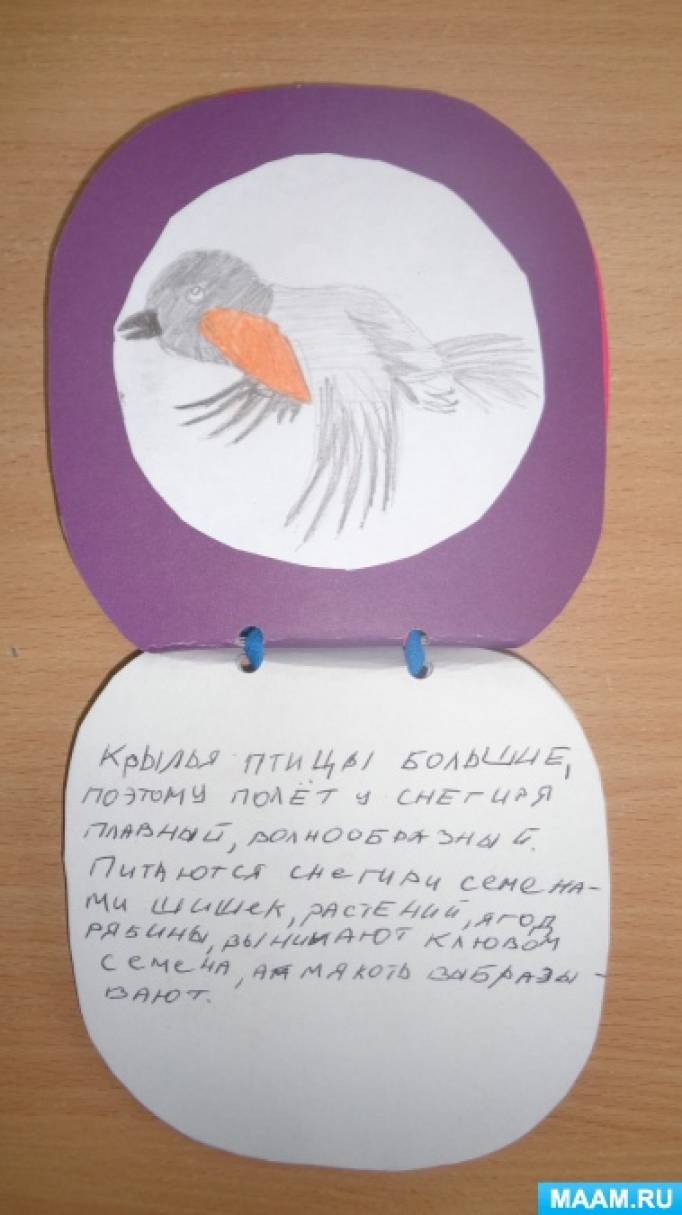 КРЫЛЬЯ ПТИЦЫ БОЛЬШИЕ,
ПОЭТОМУ ПОЛЁТ У СНЕГИРЯ
ПЛАВНЫЙ, ВОЛНООБРАЗНЫЙ.
ПИТАЮТСЯ СНЕГИРИ СЕМЕНА-
МИ ШИШЕК, РАСТЕНИЙ, ЯГОД
РЯБИНЫ, ВЫНИМАЮТ КЛЮВОМ
СЕМЕНА, А МЯКОТЬ ВЫБРАЗЫ-
ВАЮТ.
MAAM.RU